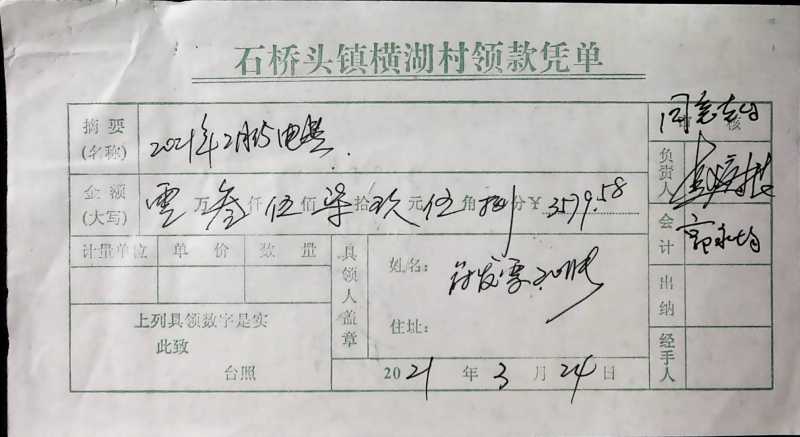 石桥头镇横湖村领款凭单
摘要
(名称)
2021年2月份电费
同意支付
审核
金额
(大写)
零万叁仟伍佰柒拾玖元伍角捌分¥3579.58
负责人
会计
计量单位 单价 数量
具领人盖章
姓名：
附发票
住址：
上列具领数字是实
此致
台照
2021年3月24日
出纳
经手人